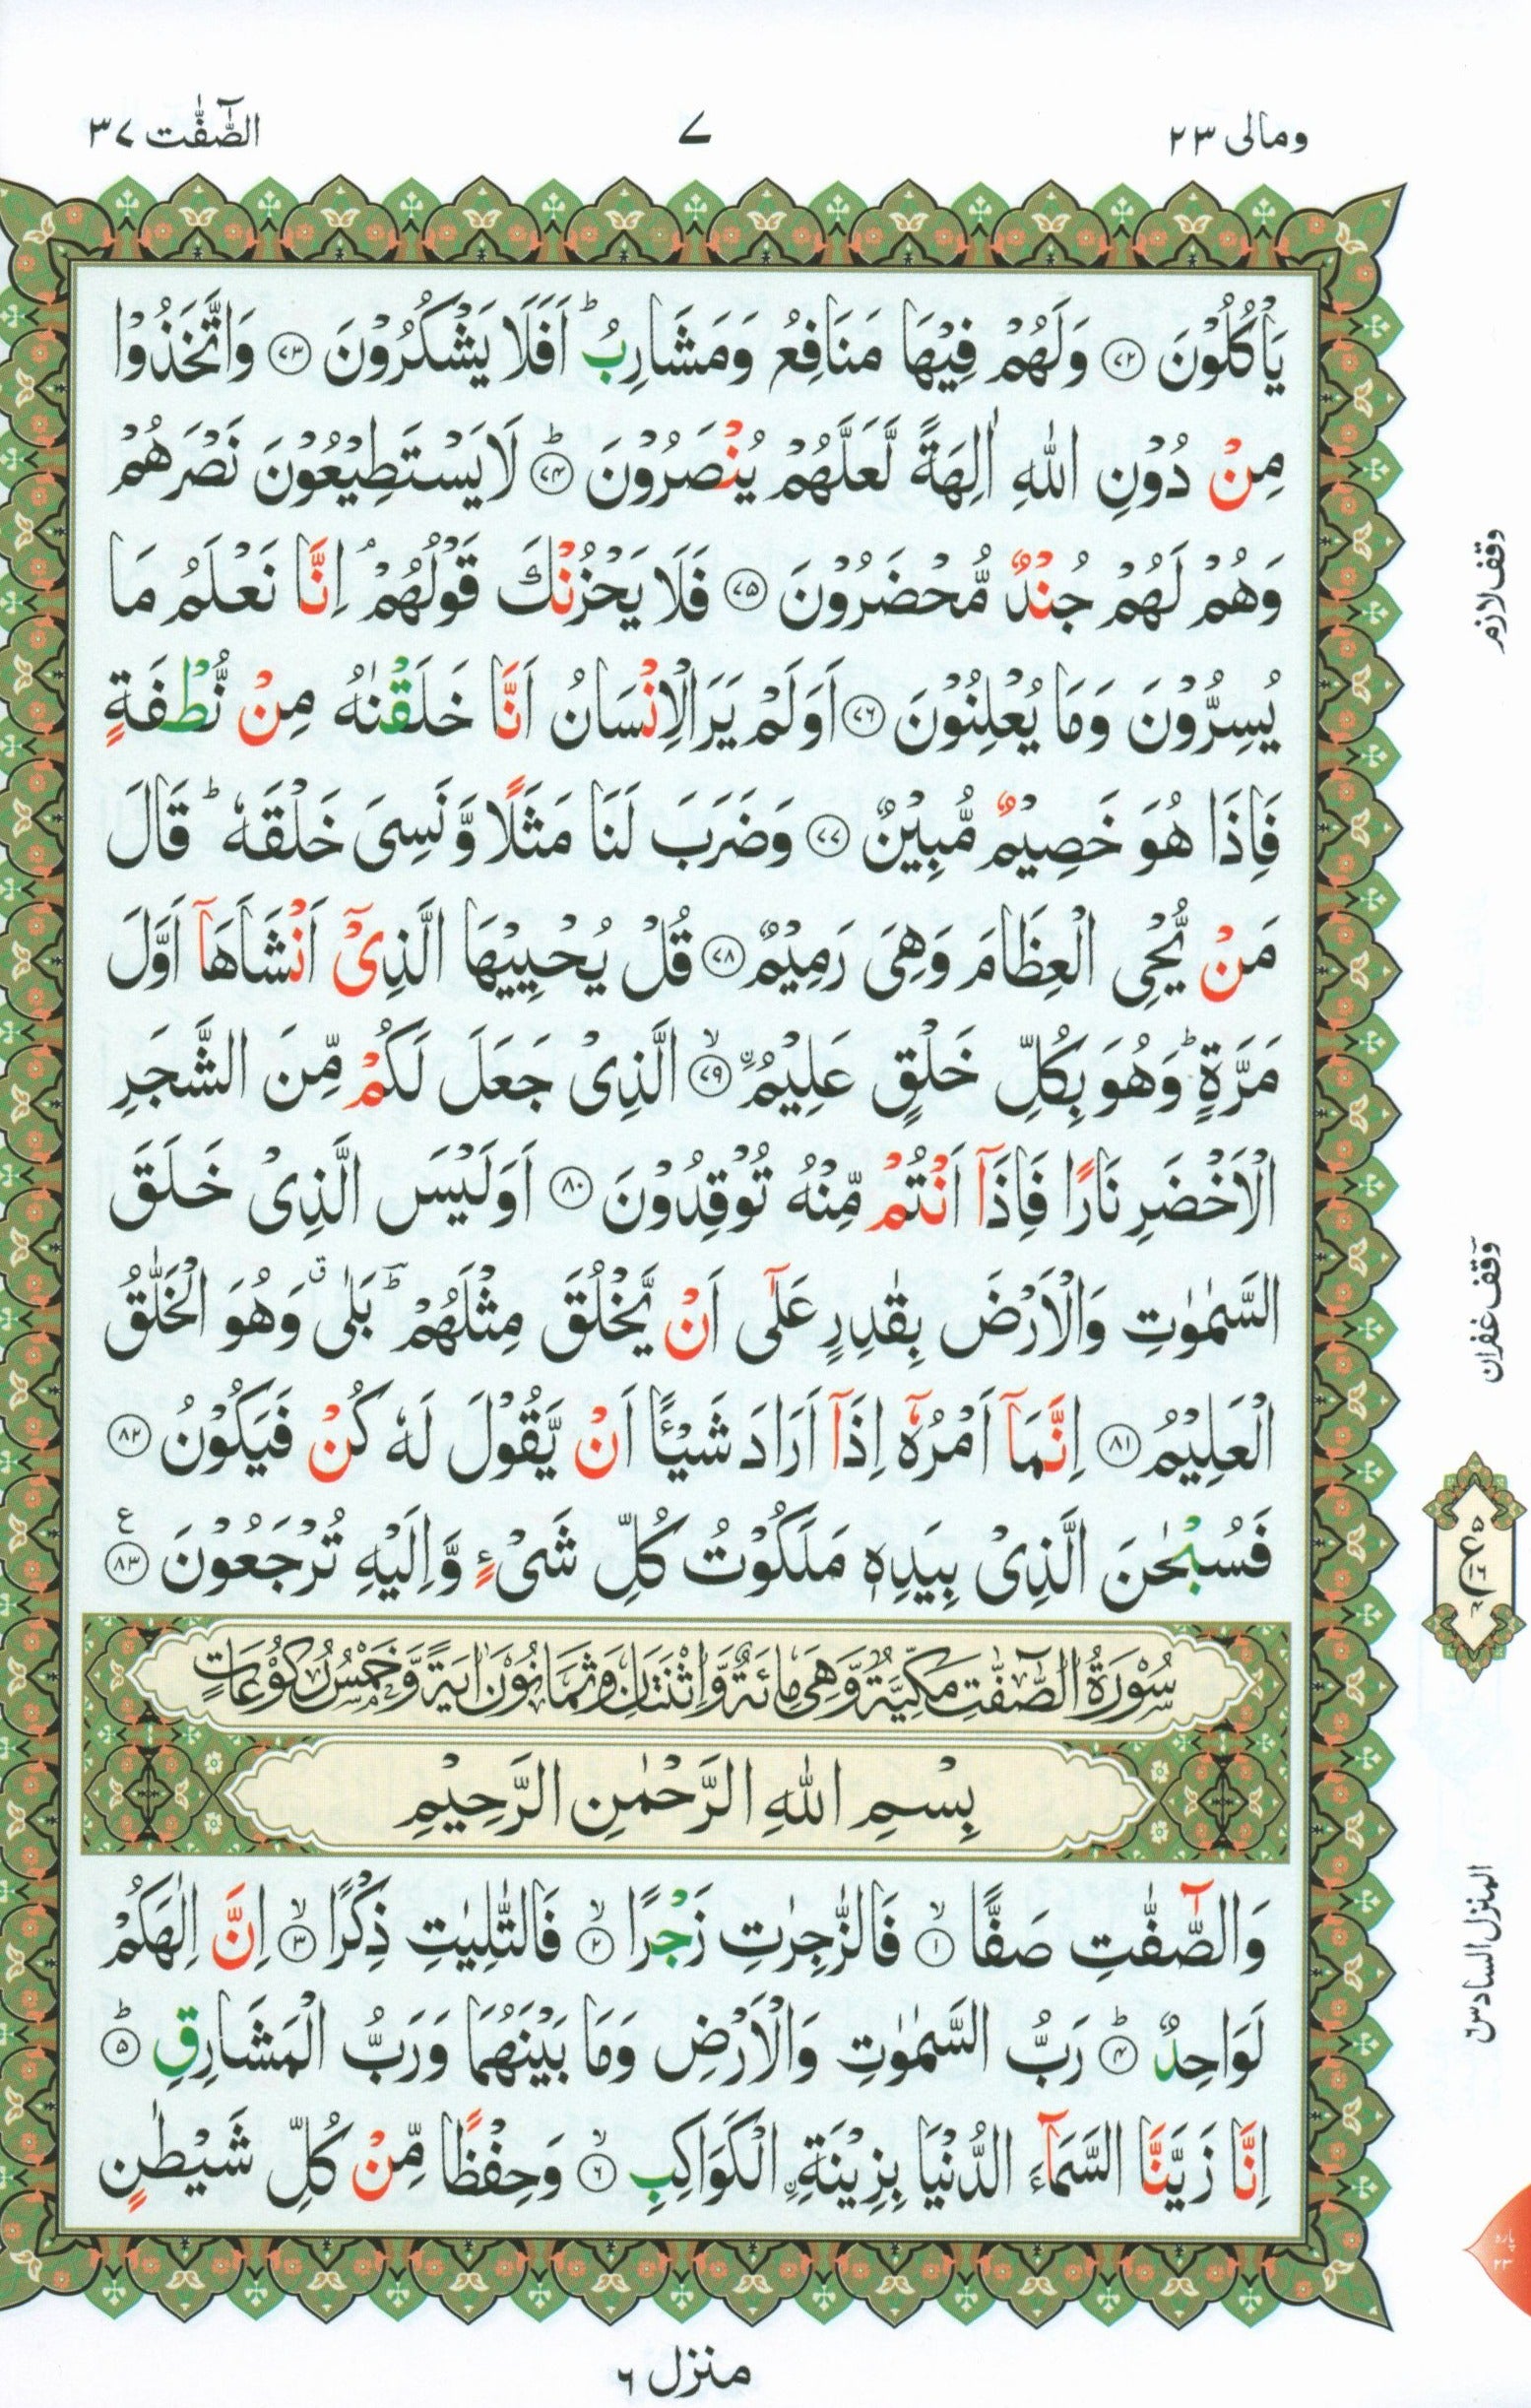 ومالی ٢٣
٧
الصّٰٓفّٰت ٣٧
يَاْكُلُوْنَ ﴿٧٢﴾ وَلَهُمْ فِيْهَا مَنَافِعُ وَمَشَارِبُ ؕ اَفَلَا يَشْكُرُوْنَ ﴿٧٣﴾ وَاتَّخَذُوْا
مِنْ دُوْنِ اللّٰهِ اٰلِهَةً لَّعَلَّهُمْ يُنْصَرُوْنَ ﴿ؕ٧٤﴾ لَا يَسْتَطِيْعُوْنَ نَصْرَهُمْ
وَهُمْ لَهُمْ جُنْدٌ مُّحْضَرُوْنَ ﴿٧٥﴾ فَلَا يَحْزُنْكَ قَوْلُهُمْ ۘ اِنَّا نَعْلَمُ مَا
يُسِرُّوْنَ وَمَا يُعْلِنُوْنَ ﴿٧٦﴾ اَوَلَمْ يَرَ الْاِنْسَانُ اَنَّا خَلَقْنٰهُ مِنْ نُّطْفَةٍ
فَاِذَا هُوَ خَصِيْمٌ مُّبِيْنٌ ﴿٧٧﴾ وَضَرَبَ لَنَا مَثَلًا وَّنَسِىَ خَلْقَهٗ ؕ قَالَ
مَنْ يُّحْىِ الْعِظَامَ وَهِىَ رَمِيْمٌ ﴿٧٨﴾ قُلْ يُحْيِيْهَا الَّذِىْۤ اَنْشَاَهَاۤ اَوَّلَ
مَرَّةٍ ؕ وَهُوَ بِكُلِّ خَلْقٍ عَلِيْمُ ۨ ﴿ۙ٧٩﴾ الَّذِىْ جَعَلَ لَكُمْ مِّنَ الشَّجَرِ
الْاَخْضَرِ نَارًا فَاِذَاۤ اَنْتُمْ مِّنْهُ تُوْقِدُوْنَ ﴿٨٠﴾ اَوَلَيْسَ الَّذِىْ خَلَقَ
السَّمٰوٰتِ وَالْاَرْضَ بِقٰدِرٍ عَلٰٓى اَنْ يَّخْلُقَ مِثْلَهُمْ ؔؕ بَلٰى ۗ وَهُوَ الْخَلّٰقُ
الْعَلِيْمُ ﴿٨١﴾ اِنَّمَاۤ اَمْرُهٗۤ اِذَاۤ اَرَادَ شَيْـًٔا اَنْ يَّقُوْلَ لَهٗ كُنْ فَيَكُوْنُ ﴿٨٢﴾
فَسُبْحٰنَ الَّذِىْ بِيَدِهٖ مَلَكُوْتُ كُلِّ شَىْءٍ وَّاِلَيْهِ تُرْجَعُوْنَ ﴿٨٣﴾ ع
سُوْرَةُ الصّٰٓفّٰتِ مَكِّيَّةٌ وَّهِىَ مِائَةٌ وَّاِثْنَتَانِ وَثَمَانُوْنَ اٰيَةً وَّخَمْسُ رُكُوْعَاتٍ
بِسْمِ اللّٰهِ الرَّحْمٰنِ الرَّحِيْمِ
وَالصّٰٓفّٰتِ صَفًّا ﴿ۙ١﴾ فَالزّٰجِرٰتِ زَجْرًا ﴿ۙ٢﴾ فَالتّٰلِيٰتِ ذِكْرًا ﴿ۙ٣﴾ اِنَّ اِلٰهَكُمْ
لَوَاحِدٌ ﴿ؕ٤﴾ رَبُّ السَّمٰوٰتِ وَالْاَرْضِ وَمَا بَيْنَهُمَا وَرَبُّ الْمَشَارِقِ ﴿ؕ٥﴾
اِنَّا زَيَّنَّا السَّمَآءَ الدُّنْيَا بِزِيْنَةِ ۨ الْكَوَاكِبِ ﴿ۙ٦﴾ وَحِفْظًا مِّنْ كُلِّ شَيْطٰنٍ
منزل ٦
وقف لازم
وقف غفران
المنزل السادس ٦
پارہ
٢٣